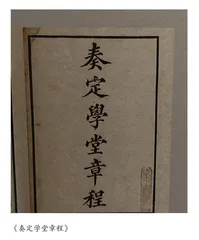 奏定學堂章程
《奏定学堂章程》